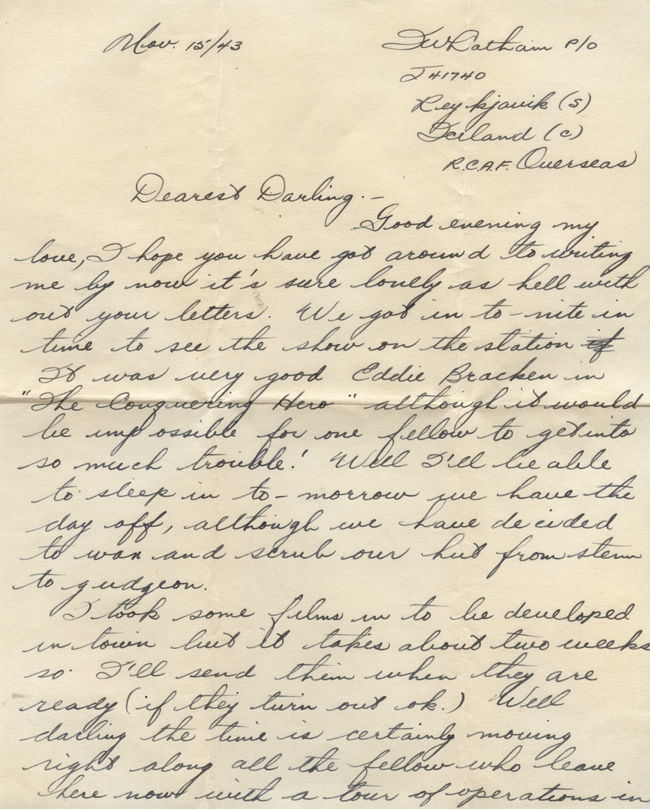 Nov. 15/43
Latham P/O
J41740
Reykjavik (S)
Iceland (C)
R.C.A.F. Overseas
Dearest Darling.-
Good evening my
love, I hope you have got around to writing
me by now it's sure lonely as hell with
out your letters. We got in to-nite in
time to see the show on the station if
It was very good Eddie Bracken in
"The Conquering Hero" although it would
be impossible for one fellow to get into
so much trouble! Well I'll be able
to sleep in to-morrow we have the
day off, although we have decided
to wax and scrub our hut from stem
to gudgeon.
I took some films in to be developed
in town but it takes about two weeks
so I'll send them when they are
ready (if they turn out ok.) Well
darling the time is certainly moving
right along all the fellow who leave
here now with a tour of operations in